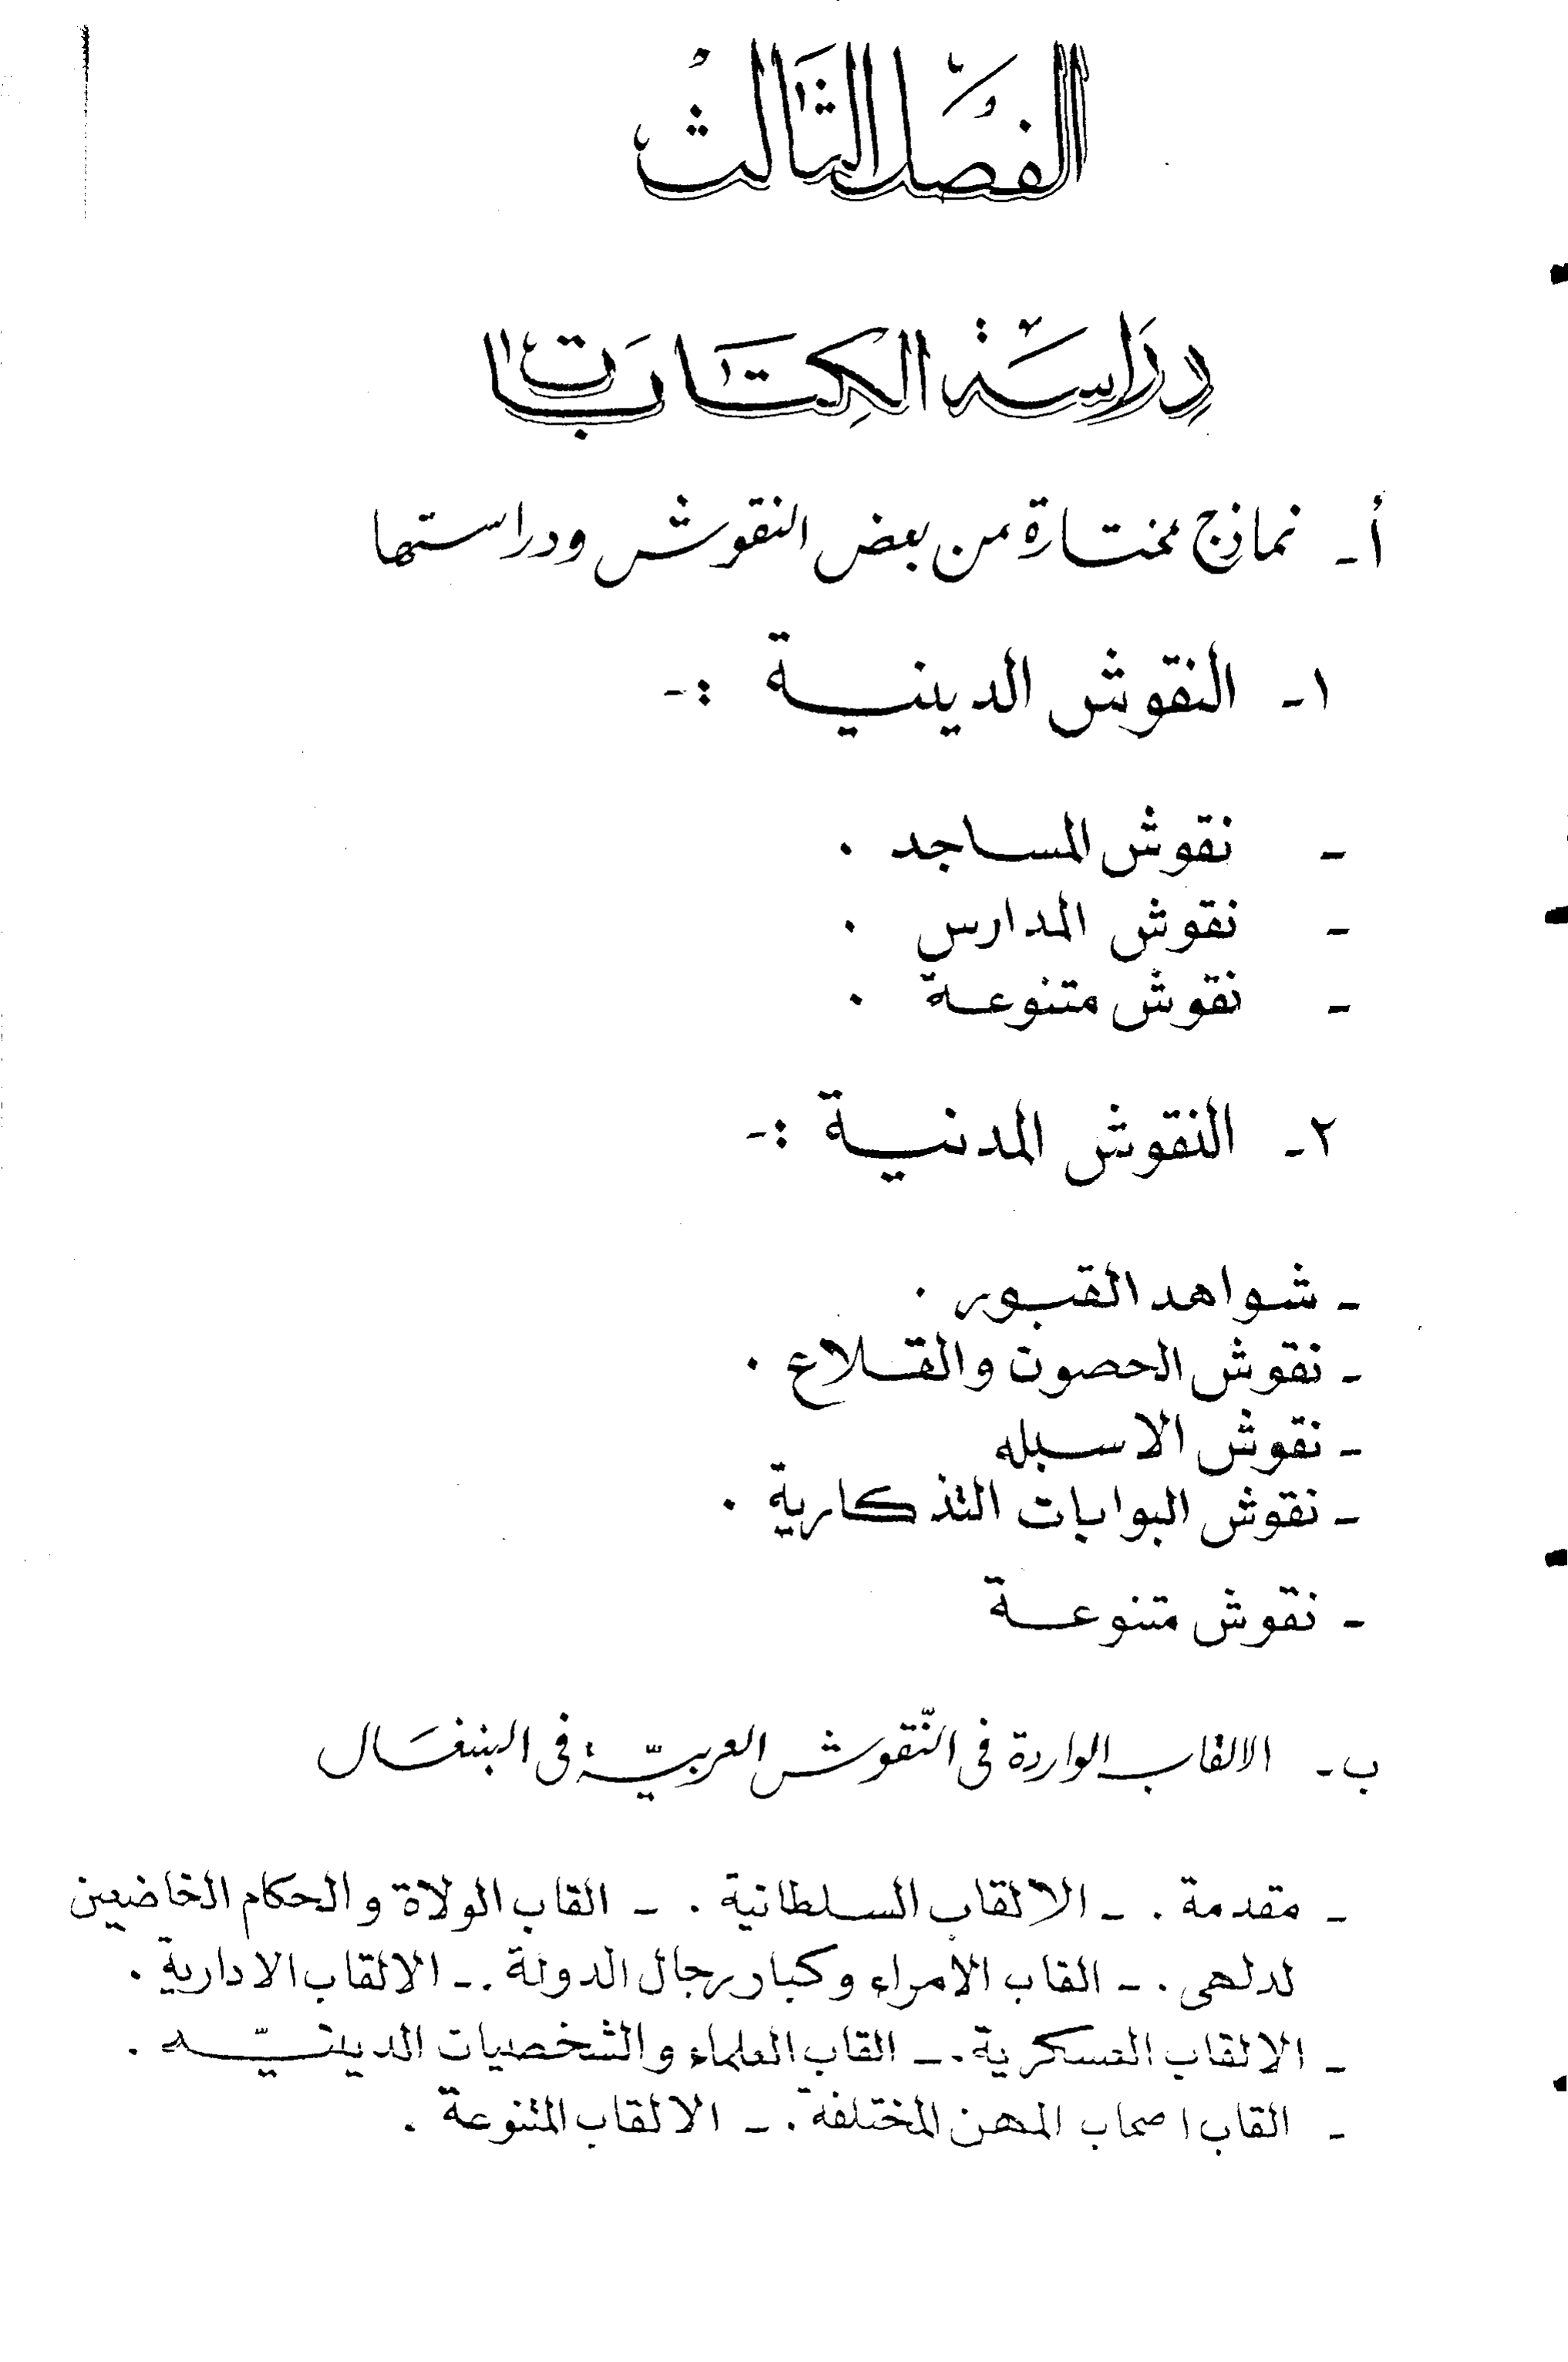 الفَصْل الثَّالث
دِرَاسَة الكِتَابَات
أ- نماذج مختارة من بعض النقوش ودراستها
١- النقوش الدينية :-
- نقوش المساجد .
- نقوش المدارس .
- نقوش متنوعة .
٢- النقوش المدنية :-
- شواهد القبور .
- نقوش الحصون والقلاع .
- نقوش الاسبله
- نقوش البوابات التذكارية .
- نقوش متنوعة
ب- الالقاب الواردة فى النّقوش العربيّة فى البنغَال
- مقدمة . - الالقاب السلطانية . - القاب الولاة والحكام الخاضعين
لدلهى . - القاب الامراء وكبار رجال الدولة . - الالقاب الادارية .
- الالقاب العسكرية . - القاب العلماء والشخصيات الدينيّه .
- القاب اصحاب المهن المختلفة . - الالقاب المتنوعة .